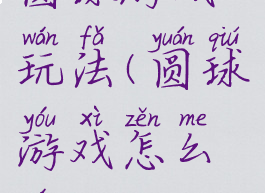 wán fǎ yuán qiú
玩法(圆球
yóu xì zěn me
游戏怎么